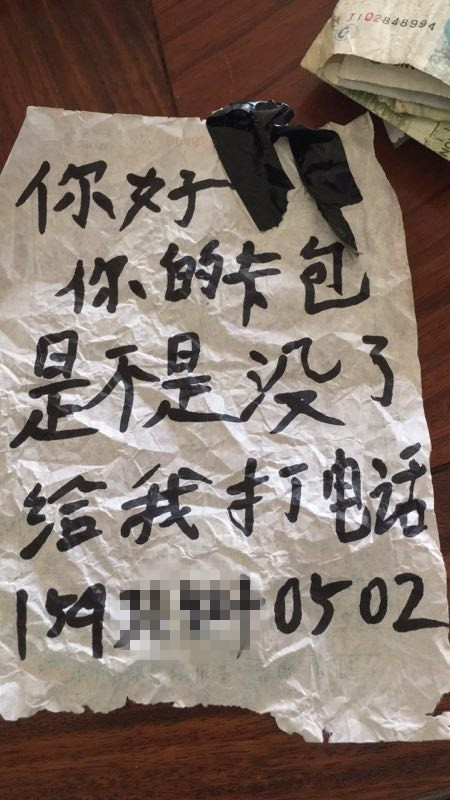 J1I02848994
你好
你的卡包
是不是没了
给我打电话
159 0502